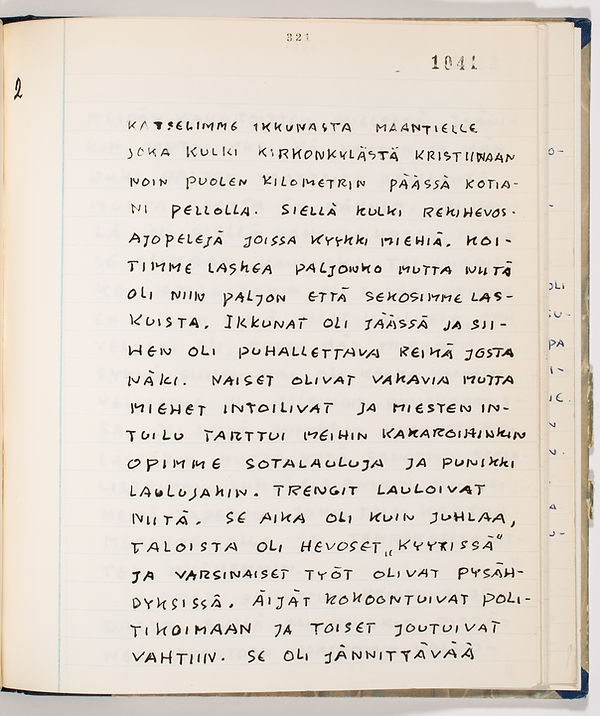 321
1041
2
KATSELIMME IKKUNASTA MAANTIELLE
JOKA KULKI KIRKONKYLÄSTÄ KRISTIINAAN
NOIN PUOLEN KILOMETRIN PÄÄSSÄ KOTIA-
NI PELLOLLA. SIELLÄ KULKI REKIHEVOS-
AJOPELEJÄ JOISSA KYYKKI MIEHIÄ. KOI-
TIMME LASKEA PALJONKO MUTTA NIITÄ
OLI NIIN PALJON ETTÄ SEKOSIMME LAS-
KUISTA. IKKUNAT OLI JÄÄSSÄ JA SII-
HEN OLI PUHALLETTAVA REIKÄ JOSTA
NÄKI. NAISET OLIVAT VAKAVIA MUTTA
MIEHET INTOILIVAT JA MIESTEN IN-
TOILU TARTTUI MEIHIN KAKAROIHINKIN
OPIMME SOTALAULUJA JA PUNIKKI
LAULUJAKIN. TRENGIT LAULOIVAT
NIITÄ. SE AIKA OLI KUIN JUHLAA,
TALOISTA OLI HEVOSET „KYYTISSÄ"
JA VARSINAISET TYÖT OLIVAT PYSÄH-
DYKSISSÄ. ÄIJÄT KOKOONTUIVAT POLI-
TIKOIMAAN JA TOISET JOUTUIVAT
VAHTIIN. SE OLI JÄNNITTÄVÄÄ